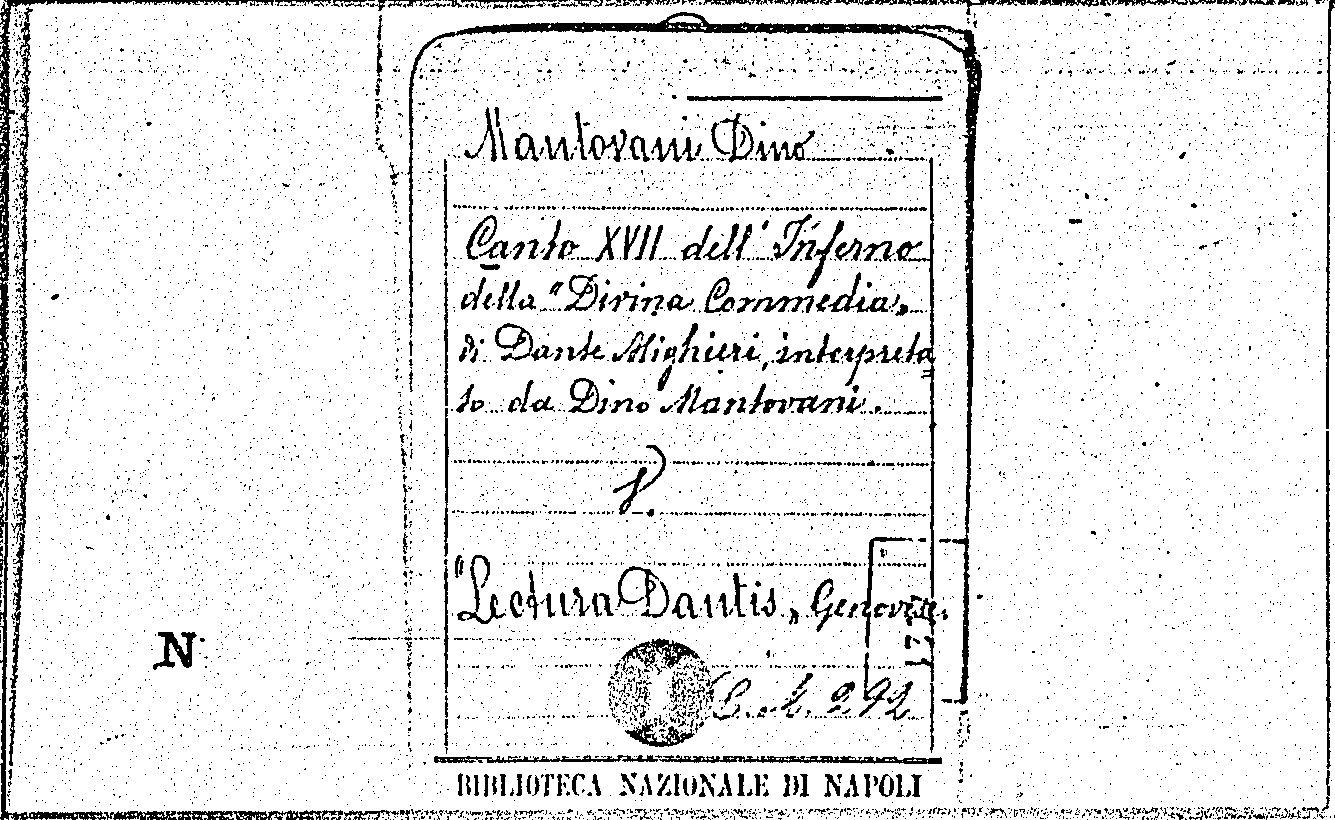 Mantovani Dino
Canto XVII dell' Inferno
della "Divina Commedia„
di Dante Alighieri, interpreta
to da Dino Mantovani.
"Lectura Dantis„ Genovese.
292
N
BIBLIOTECA NAZIONALE DI NAPOLI